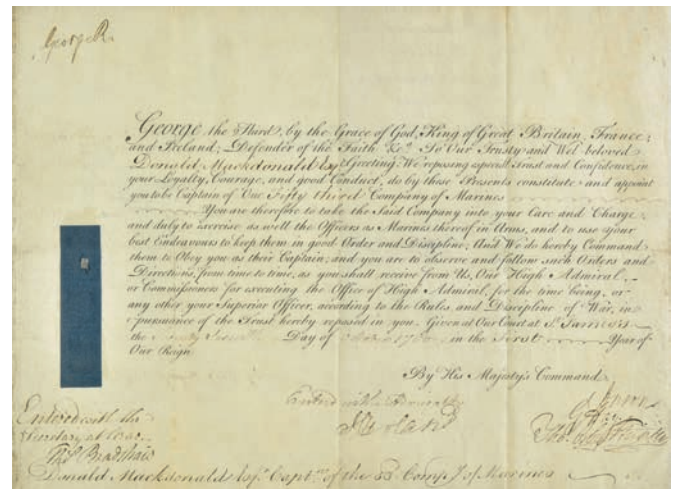 George R.
George the Third, by the Grace of God, King of Great Britain, France,
and Ireland, Defender of the Faith &c. To Our Trusty and Wel beloved
Donald Mackdonald Esqr. Greeting. We reposing especial Trust and Confidence, in
your Loyalty, Courage, and good Conduct, do by these Presents constitute and appoint
you to be Captain of Our Fifty third Company of Marines
You are therefore to take the Said Company into your Care and Charge,
and duly to exercise as well the Officers as Marines thereof in Arms, and to use your
best Endeavours to keep them in good Order and Discipline; And We do hereby Command
them to Obey you as their Captain; and you are to observe and follow such Orders and
Directions, from time to time, as you shall receive from Us, Our High Admiral,
or Commissioners for executing the Office of High Admiral, for the time being, or
any other your Superior Officer, according to the Rules and Discipline of War, in
pursuance of the Trust hereby reposed in you. Given at Our Court at St. James's
the Day of in the First Year of
Our Reign.
By His Majesty's Command.
Entred with the
Secretary at War.
Thos. Bradshaw
Donald Mackdonald Esqr. Captn. of the 53 Compy. of Marines